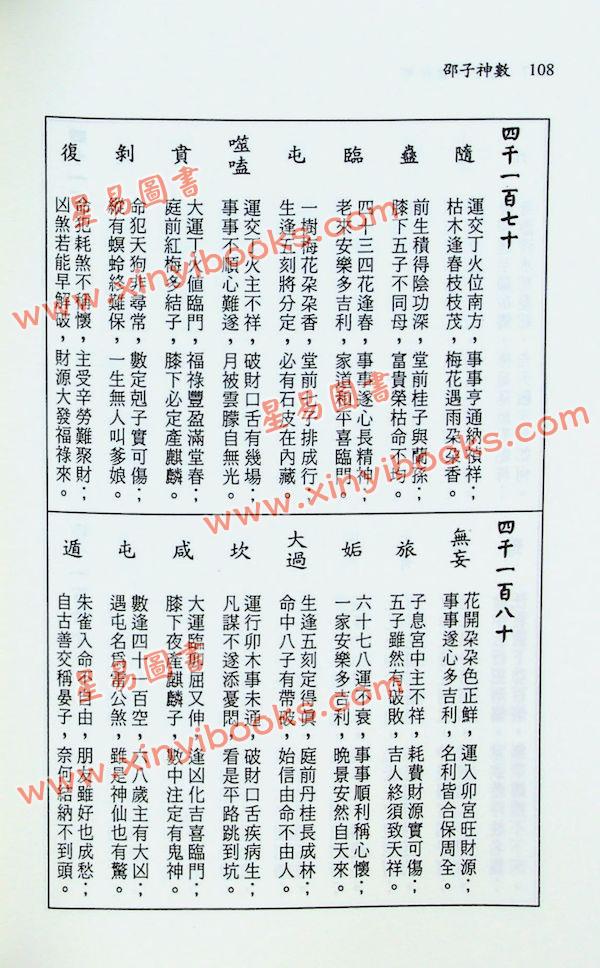 邵子神數 108
四千一百七十
隨
運交丁火位南方，事事亨通納禎祥；
枯木逢春枝枝茂，梅花遇雨朶朶香。
蠱
前生積得陰功深，堂前桂子與蘭孫；
膝下五子不同母，富貴榮枯命不均。
臨
四十三四花逢春，事事遂心長精神；
老來安樂多吉利，家道和平喜臨門。
屯
一樹梅花朶朶香，堂前七子排成行；
生逢五刻將分定，必有石皮在內藏。
噬嗑
運交丁火主不祥，破財口舌有幾場；
事事不順心難遂，月被雲朦自無光。
賁
大運丁火値臨門，福祿豐盈滿堂春；
庭前紅梅多結子，膝下必定產麒麟。
剝
命犯天狗非尋常，數定剋子實可傷；
縱有螟蛉終難保，一生無人叫爹娘。
復
命犯耗煞不稱懷，主受辛勞難聚財；
凶煞若能早解破，財源大發福祿來。
四千一百八十
無妄
花開朶朶色正鮮，運入卯宮旺財源；
事事遂心多吉利，名利皆合保周全。
旅
子息宮中主不祥，耗費財源實可傷；
五子雖然有破敗，吉人終須致天祥。
姤
六十七八運不衰，事事順利稱心懷；
一家安樂多吉利，晩景安然自天來。
大過
生逢五刻定得眞，庭前丹桂長成林；
命中八子有帶破，始信由命不由人。
坎
運行卯木事未通，破財口舌疾病生；
凡謀不遂添憂悶，看是平路跳到坑。
咸
大運臨卯屈又伸，逢凶化吉喜臨門；
膝下夜產麒麟子，數中注定有鬼神。
屯
數逢四十一百空，一八歲主有大凶；
遇屯名爲雷公煞，雖是神仙也有驚。
遁
朱雀入命不自由，朋友雖好也成愁；
自古善交稱晏子，奈何結納不到頭。
星易圖書
www.xinyibooks.com
星易圖書
www.xinyibooks.com
星易圖書
www.xinyibooks.com